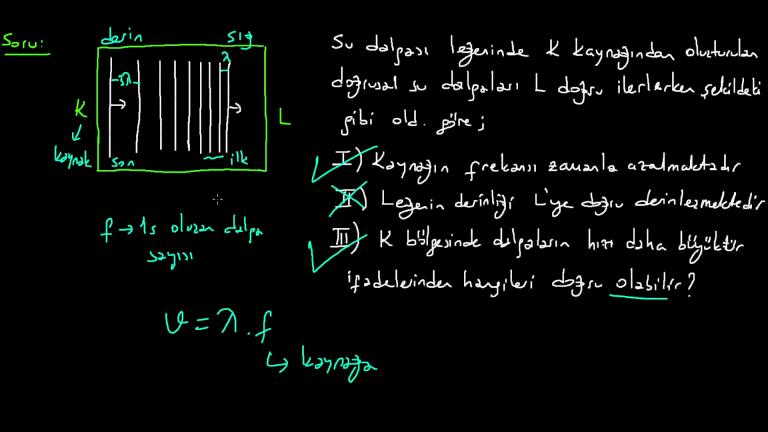 Soru:
derin
sığ
λ
3λ
K
L
kaynak
son
ilk
f → 1s oluşan dalga
sayısı
v = λ . f
↳ kaynağa
Su dalgası leğeninde K kaynağından oluşturulan
doğrusal su dalgaları L doğru ilerlerken şekildeki
gibi old. göre;
I) Kaynağın frekansı zamanla azalmaktadır
II) Leğenin derinliği L'ye doğru derinleşmektedir
III) K bölgesinde dalgaların hızı daha büyüktür
ifadelerinden hangileri doğru olabilir?